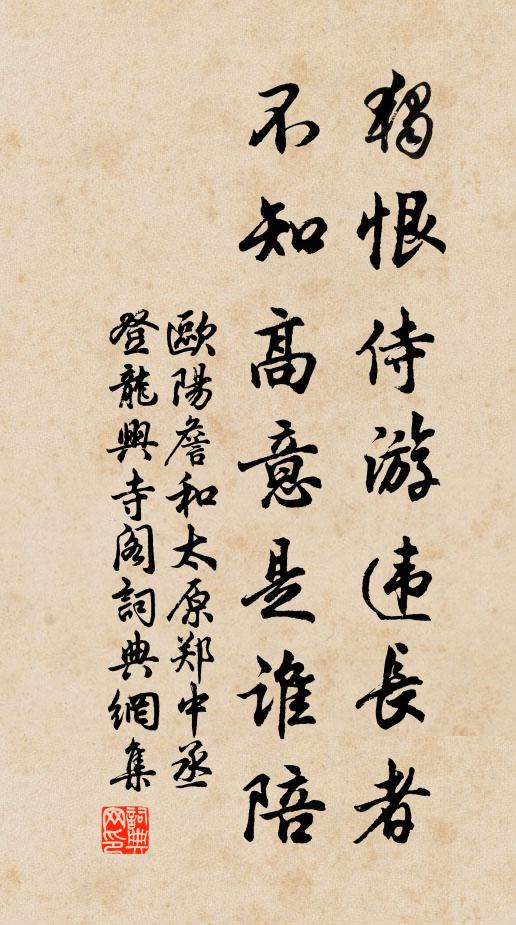 獨恨侍游违長者
不知高意是誰陪
歐陽詹和太原郑中丞
登龍興寺阁詞典網集
詞典网印